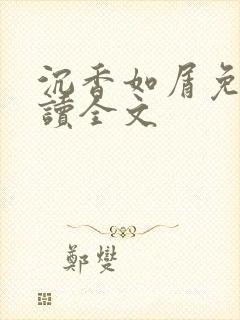 沉香如屑免
讀全文
鄭燮